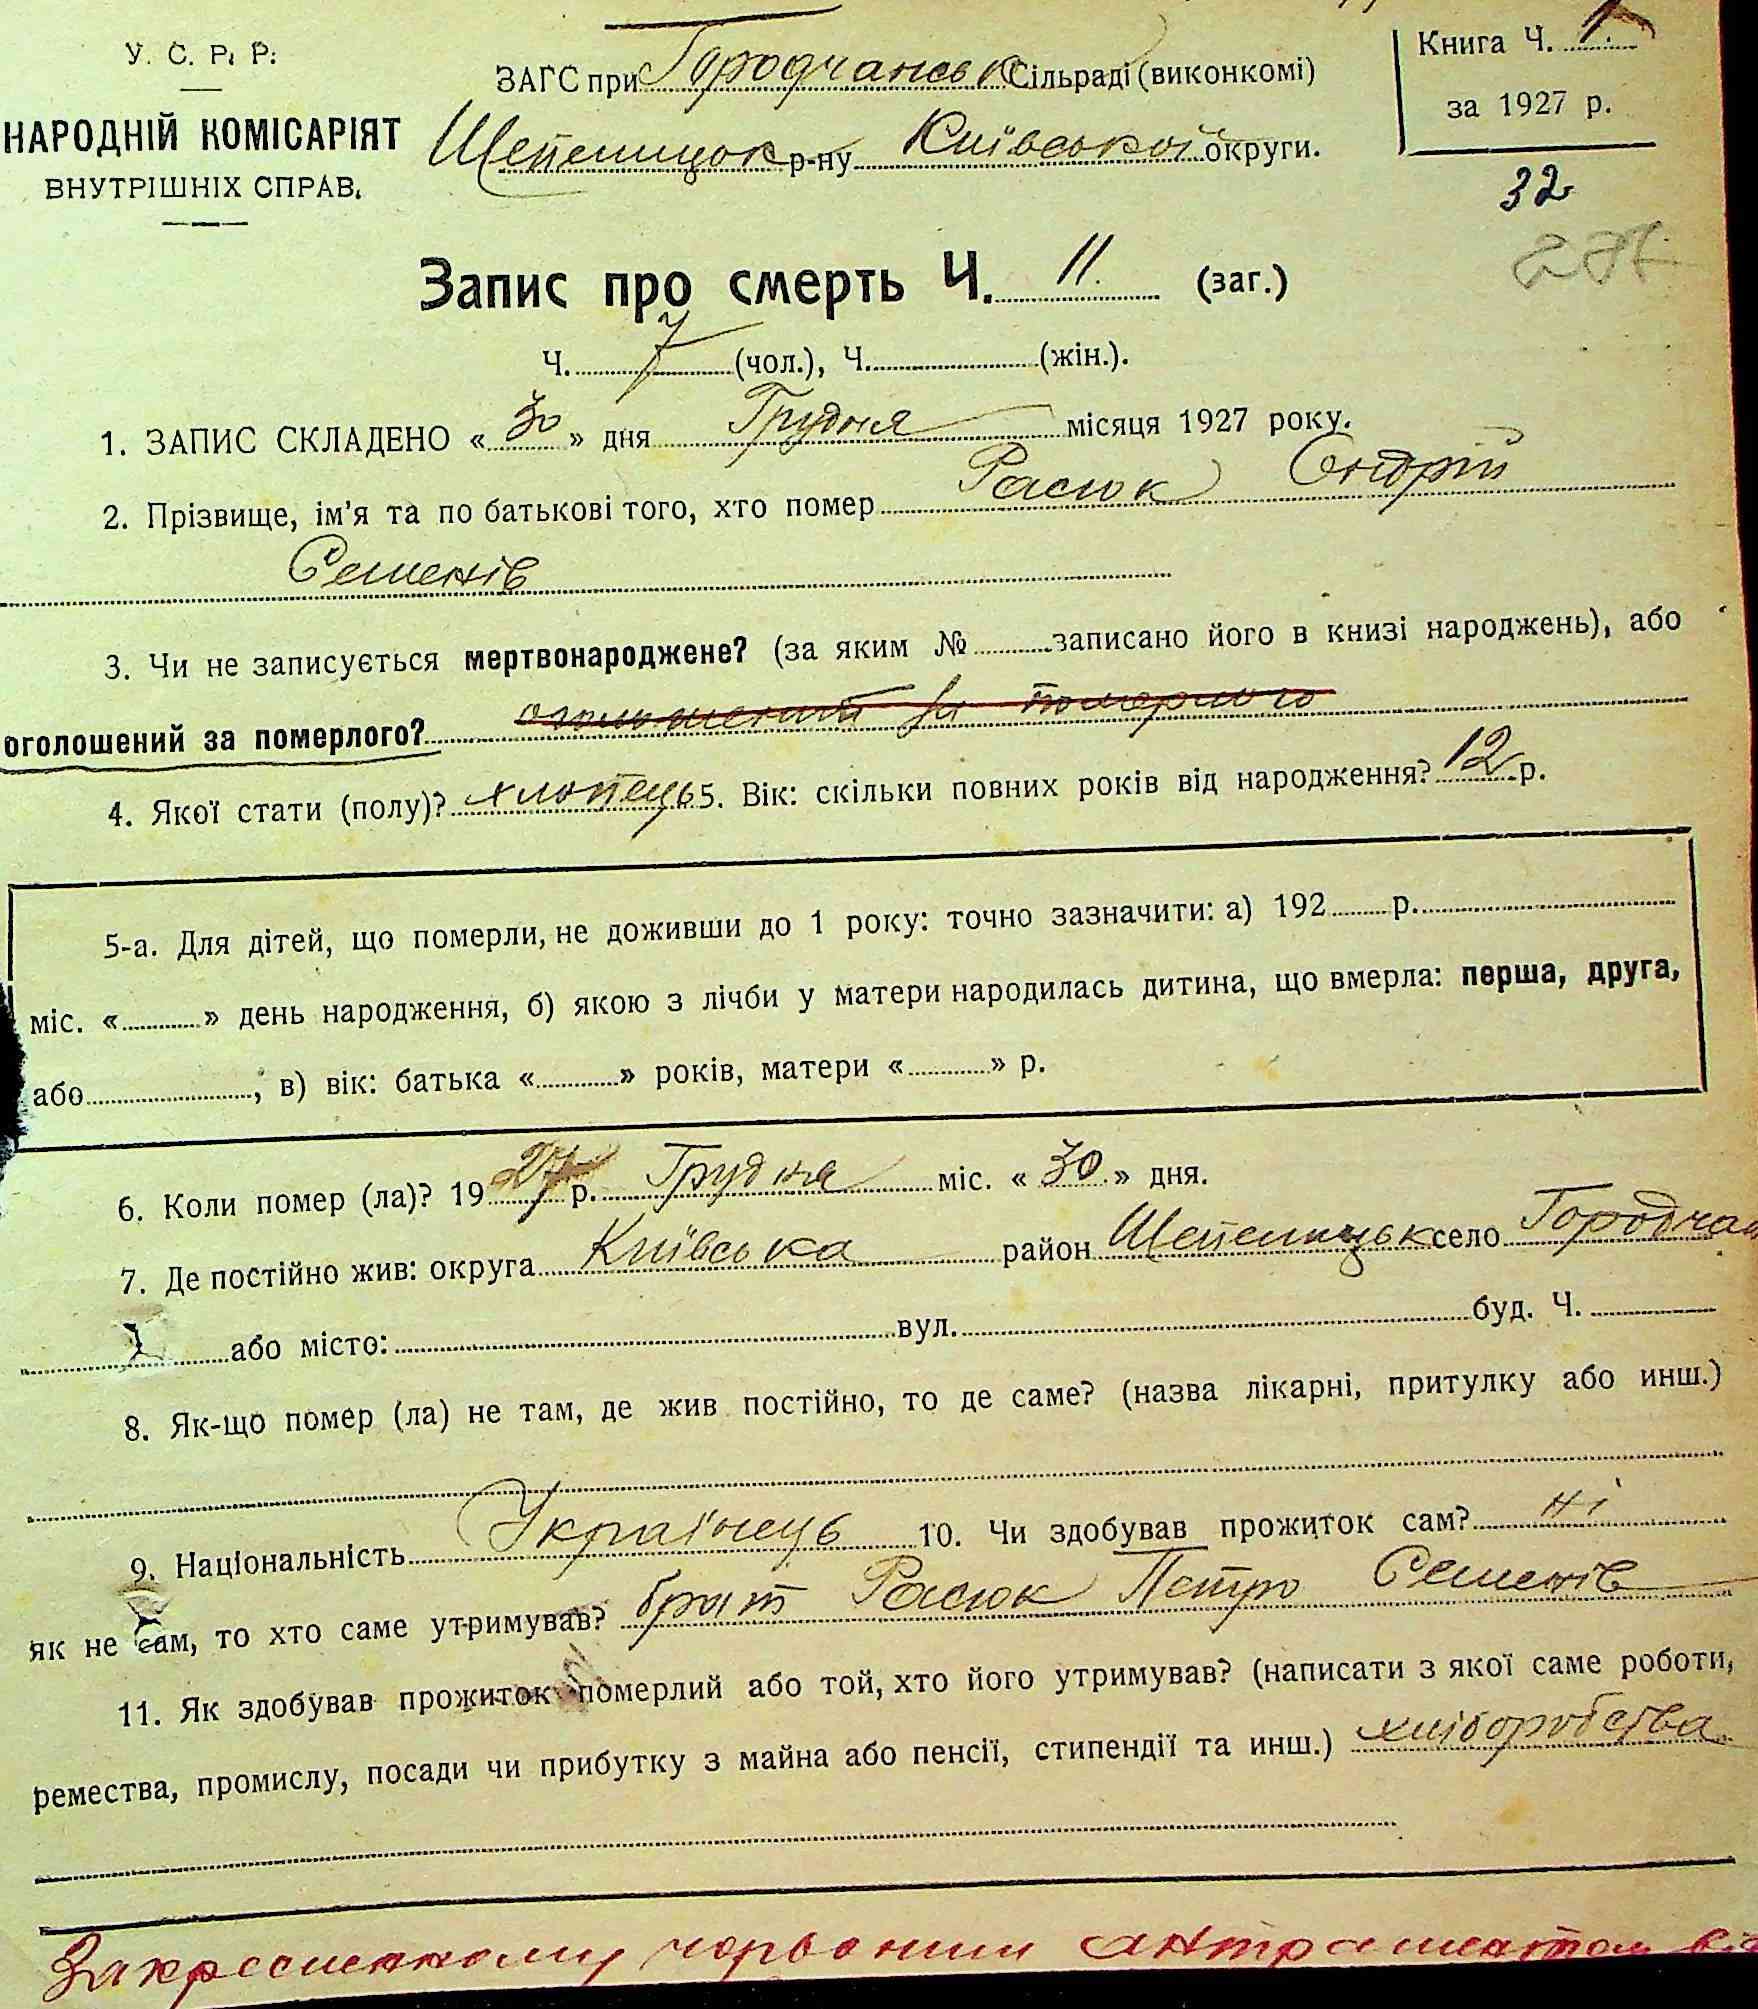 У. С. Р. Р.
НАРОДНІЙ КОМІСАРІЯТ
ВНУТРІШНІХ СПРАВ.
ЗАГС при Городчанськ Сільраді (виконкомі)
Шепелицьк р-ну Київської округи.
Книга Ч. 1.
за 1927 р.
32
Запис про смерть Ч. 11. (заг.)
Ч. 7 (чол.), Ч. (жін.).
1. ЗАПИС СКЛАДЕНО « 30 » дня Грудня місяця 1927 року.
2. Прізвище, ім'я та по батькові того, хто помер Расюк Ондрій
Семенів
3. Чи не записується мертвонароджене? (за яким № записано його в книзі народжень), або
оголошений за померлого? оголошений за померлого
4. Якої стати (полу)? хлопець 5. Вік: скільки повних років від народження? 12 р.
5-а. Для дітей, що померли, не доживши до 1 року: точно зазначити: а) 192 р.
міс. « » день народження, б) якою з лічби у матери народилась дитина, що вмерла: перша, друга,
або , в) вік: батька « » років, матери « » р.
6. Коли помер (ла)? 1927 р. Грудня міс. « 30 » дня.
7. Де постійно жив: округа Київська район Шепелицьк село Городчан
або місто: вул. буд. Ч.
8. Як-що помер (ла) не там, де жив постійно, то де саме? (назва лікарні, притулку або инш.)
9. Національність Українець 10. Чи здобував прожиток сам? ні
як не сам, то хто саме утримував? брат Расюк Петро Семенів
11. Як здобував прожиток померлий або той, хто його утримував? (написати з якої саме роботи,
ремества, промислу, посади чи прибутку з майна або пенсії, стипендії та инш.) хліборобства
Закресленному червоним антраментом